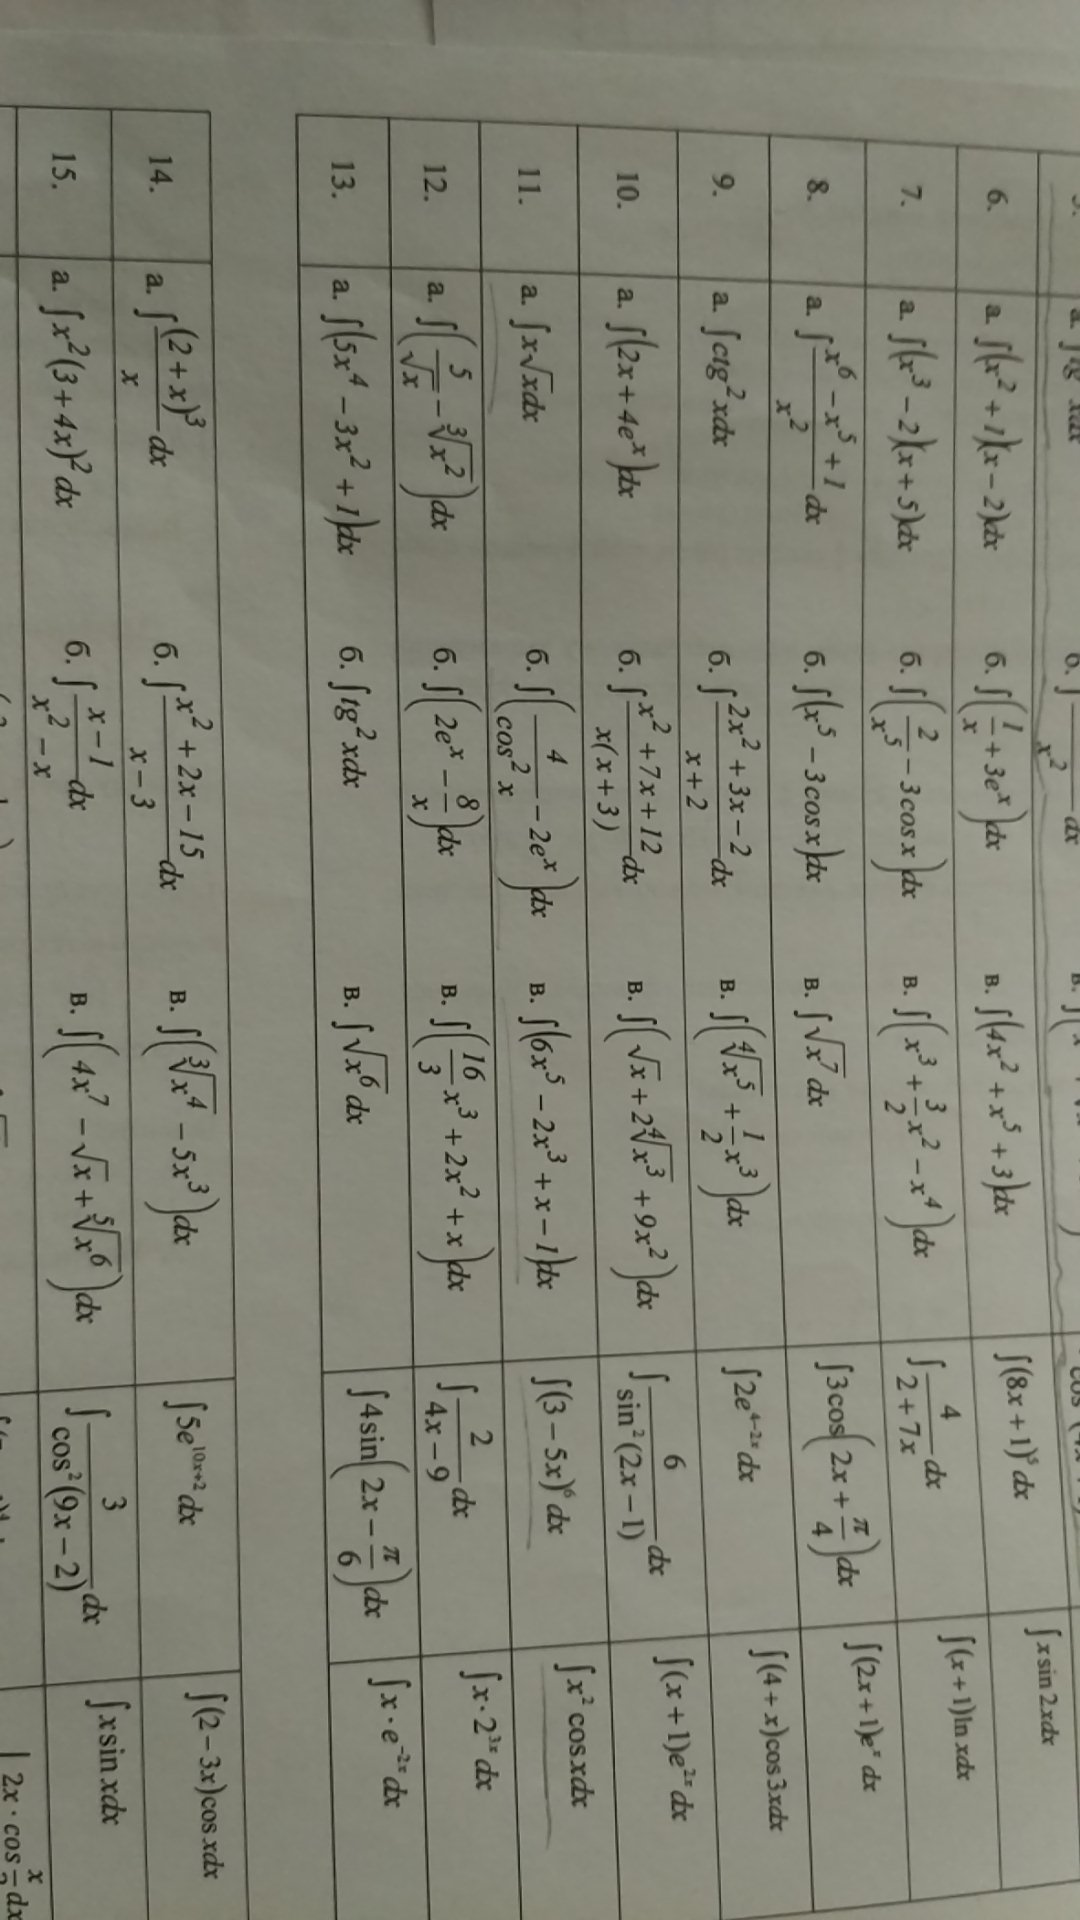 6. а. ∫(x² + 1)(x − 2)dx б. ∫(1/x + 3eˣ)dx в. ∫(4x² + x⁵ + 3)dx ∫(8x + 1)⁵ dx ∫x sin 2xdx
7. а. ∫(x³ − 2)(x + 5)dx б. ∫(2/x⁵ − 3cos x)dx в. ∫(x³ + 3/2 x² − x⁴)dx ∫ 4/(2 + 7x) dx ∫(x + 1)ln xdx
8. а. ∫ (x⁶ − x⁵ + 1)/x² dx б. ∫(x⁵ − 3cos x)dx в. ∫√x⁷ dx ∫3cos(2x + π/4)dx ∫(2x + 1)eˣ dx
9. а. ∫ctg² xdx б. ∫ (2x² + 3x − 2)/(x + 2) dx в. ∫(∜x⁵ + 1/2 x³)dx ∫2e⁴⁻²ˣ dx ∫(4 + x)cos 3xdx
10. а. ∫(2x + 4eˣ)dx б. ∫ (x² + 7x + 12)/(x(x + 3)) dx в. ∫(√x + 2∜x³ + 9x²)dx ∫ 6/(sin²(2x − 1)) dx ∫(x + 1)e²ˣ dx
11. а. ∫x√xdx б. ∫(4/cos² x − 2eˣ)dx в. ∫(6x⁵ − 2x³ + x − 1)dx ∫(3 − 5x)⁶ dx ∫x² cos xdx
12. а. ∫(5/√x − ∛x²)dx б. ∫(2eˣ − 8/x)dx в. ∫(16/3 x³ + 2x² + x)dx ∫ 2/(4x − 9) dx ∫x · 2³ˣ dx
13. а. ∫(5x⁴ − 3x² + 1)dx б. ∫tg² xdx в. ∫√x⁶ dx ∫4sin(2x − π/6)dx ∫x · e⁻²ˣ dx
14. а. ∫ (2 + x)³/x dx б. ∫ (x² + 2x − 15)/(x − 3) dx в. ∫(∛x⁴ − 5x³)dx ∫5e¹⁰ˣ⁺² dx ∫(2 − 3x)cos xdx
15. а. ∫x²(3 + 4x)² dx б. ∫ (x − 1)/(x² − x) dx в. ∫(4x⁷ − √x + ⁵√x⁶)dx ∫ 3/(cos²(9x − 2)) dx ∫x sin xdx